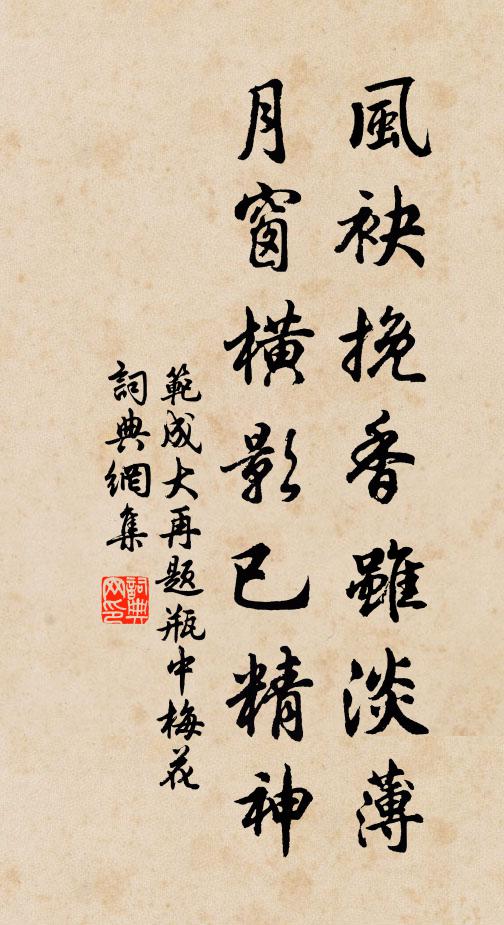 風袂挽香雖淡薄
月窗橫影已精神
範成大再题瓶中梅花
詞典網集
詞典
网印